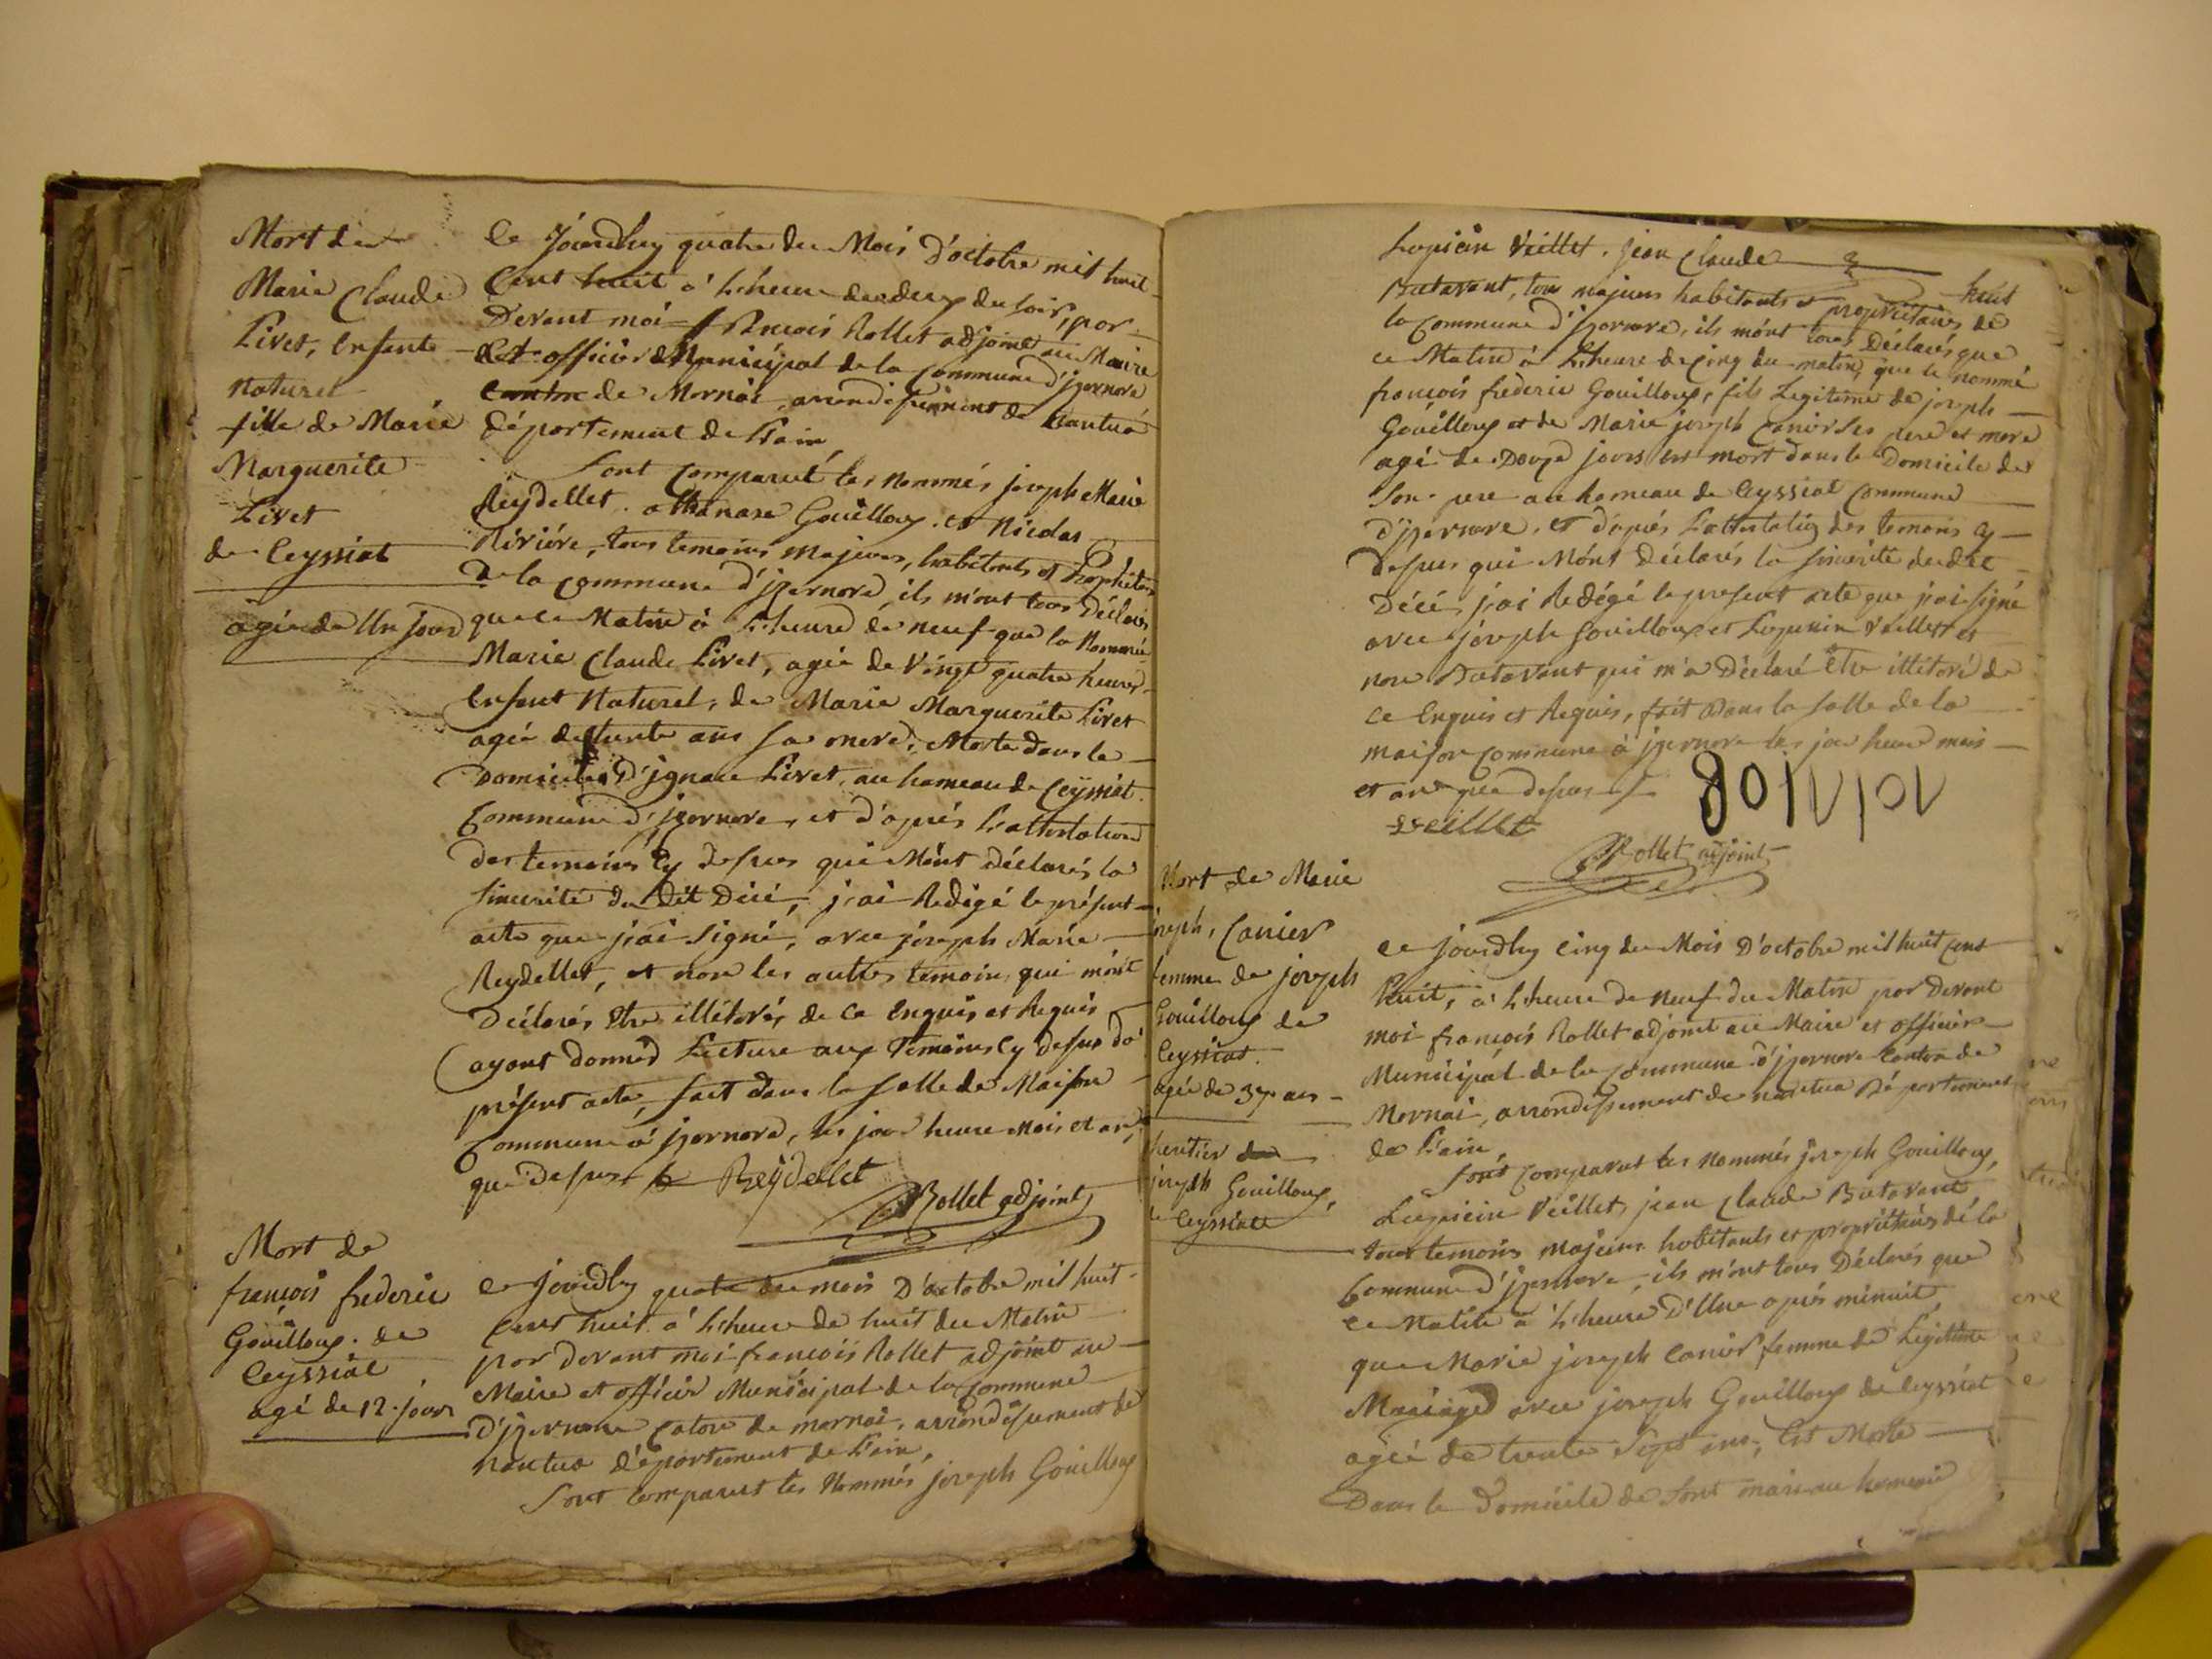 Mort de
Marie Claude
Livet, Enfante
naturel
fille de Marie
Marguerite
Livet
de Ceyssiat
agée de Un jour
Ce Jourdhuy quatre du Mois D'octobre mil huit
Cent huit à L'heure de deux du soir, par
Devant moi François Rollet adjoint au Maire
Et officier Municipal de la Commune d'jzernore
Canton de Mornai, arrondissement de Nantua
Département de L'ain
Sont Comparut les nommés joseph Marie
Reydellet. athanase Gouilloux. et Nicolas
Rivière, tous temoins majeurs, habitants et Proprietaires
De la Commune d'jzernore, ils m'ont tous Déclarés
que ce Matin à L'heure de neuf que la Nommé
Marie Claude Livet, agée de Vingt quatre heures
Enfent Naturel, de Marie Marguerite Livet
agée de trente ans sa mere, Morte dans le
Domicile D'jgnace Livet, au hameau de Ceyssiat
Commune d'jzernore, et d'aprés L'attestation
des temoins Cy dessus qui M'ont déclarés la
sincerité du dit Décé, j'ai Redigé le présent
acte que j'ai signé, avec joseph Marie
Reydellet, et non les autres temoins qui m'ont
Déclarés Etre illétérés de ce Enquis et Requis
ayant donné Lecture aux Temoins Cy dessus du
présent acte, fait dans la salle de Maison
Commune à jzernore, les jour heure Mois et an,
que dessus Reydellet
Rollet adjoint
Mort de
françois frederic
Gouilloux. de
Ceyssiat
agé de 12. jours
Ce jourdhuy quatre du mois D'octobre mil huit
Cent huit à L'heure de huit du Matin
par devant moi françois Rollet adjoint au
Maire et officier Municipal de la Commune
D'jzernore Caton de mornai, arrondissement de
nantua Département de L'ain,
Sont Comparut les Nommés joseph Gouilloux
Lupicin Veillet. jean Claude
Butavant, tous majeurs habitants et proprietaires de
la Commune d'jzernore, ils m'ont tous Déclarés que
ce Matin à L'heure de Cinq du matin, que le nommé
françois frederic Gouilloux, fils Legitime de joseph
Gouilloux et de Marie joseph Canier ses pere et mere
agé de Douze jours est mort dans le Domicile de
Son pere au hameau de Ceyssiat Commune
D'jzernore, et d'aprés L'attestation des temoins Cy
dessus qui M'ont Déclarés la sincerité du dit
Décé, j'ai Redigé le present acte que j'ai signé
avec joseph Gouilloux et Lupicin Veillet et
non Butavant qui m'a Déclaré Etre illétéré de
ce Enquis et Requis, fait dans la salle de la
maison Commune à jzernore les jour heure mois
et an que dessus
Veillet
Rollet adjoint
Mort de Marie
joseph, Canier
femme de joseph
Gouilloux de
Ceyssiat.
agée de 37 ans
heritier
joseph Gouilloux,
de Ceyssiat
Ce jourdhuy Cinq du Mois D'octobre mil huit Cent
huit, à L'heure de neuf du Matin par Devant
moi françois Rollet adjoint au Maire et officier
Municipal de la Commune d'jzernore Canton de
Mornai, arrondissement de nantua Département
de L'ain,
Sont Comparut les nommés joseph Gouilloux,
Lupicin Veillet, jean Claude Butavant
tous temoins majeurs habitants et propriétaires dé la
Commune d'jzernore, ils m'ont tous Déclarés que
Ce Matin à L'heure D'Une après minuit
que Marie joseph Canier femme de Legitime
Mariage avec joseph Gouilloux de Ceyssiat
agée de trente Sept ans, Est Morte
Dans le Domicile de Sont mari au hameau